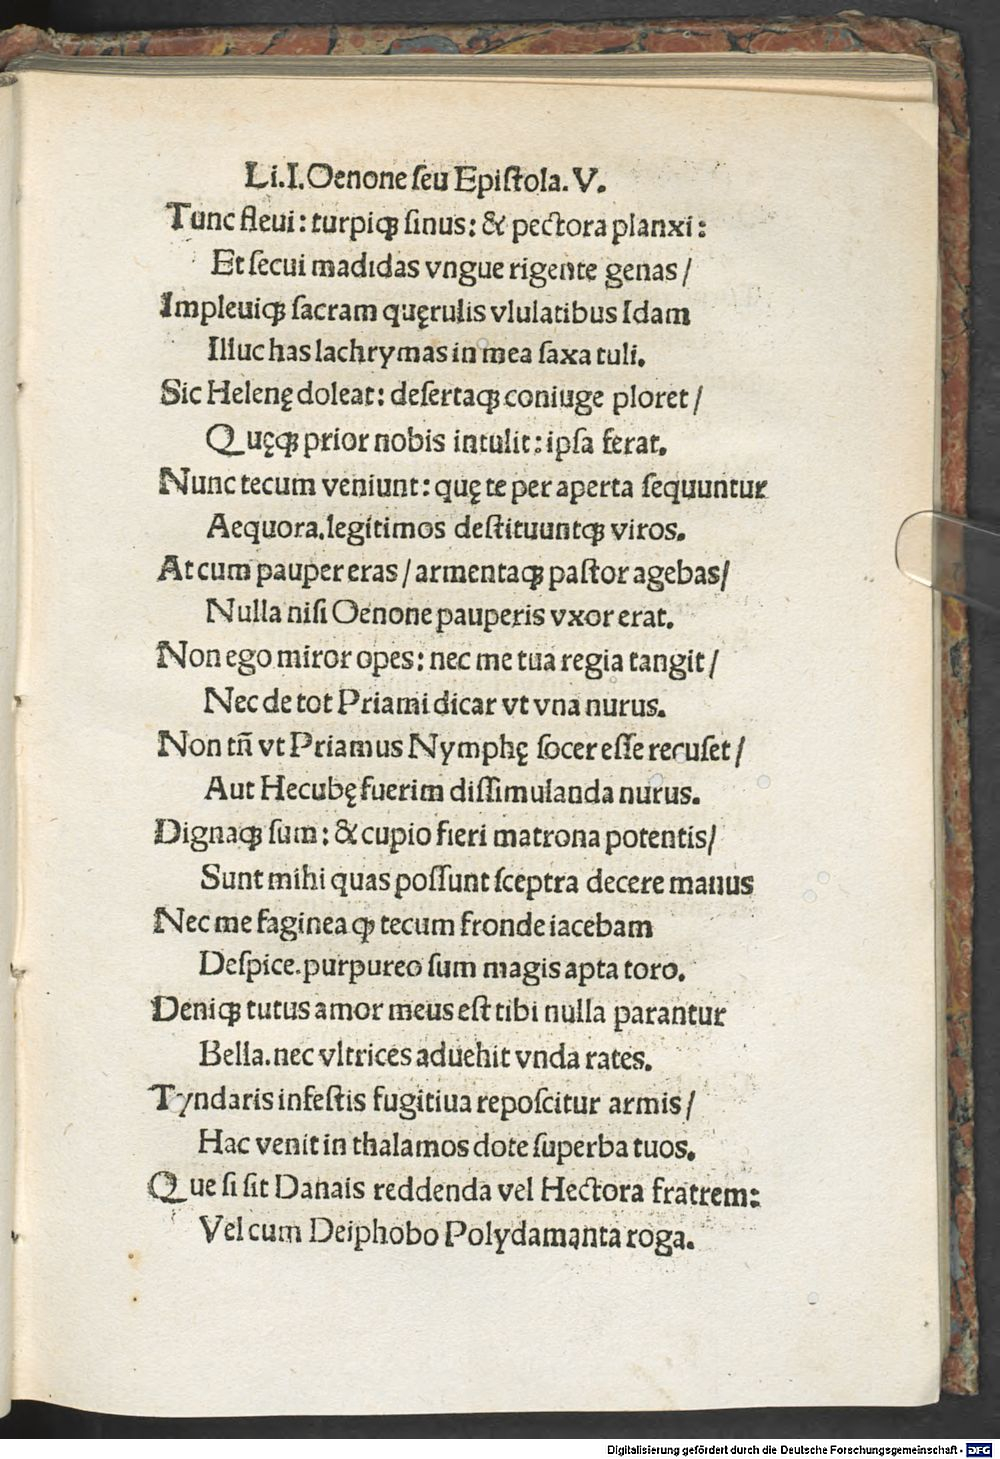 Li.I.Oenone seu Epistola.V.
Tunc fleui: turpiqꝫ sinus: & pectora planxi:
Et secui madidas vngue rigente genas/
Impleuiqꝫ sacram quęrulis vlulatibus Idam
Illuc has lachrymas in mea saxa tuli.
Sic Helenę doleat: desertaqꝫ coniuge ploret/
Quęqꝫ prior nobis intulit: ipsa ferat.
Nunc tecum veniunt: quę te per aperta sequuntur
Aequora.legitimos destituuntqꝫ viros.
At cum pauper eras/armentaqꝫ pastor agebas/
Nulla nisi Oenone pauperis vxor erat.
Non ego miror opes: nec me tua regia tangit/
Nec de tot Priami dicar vt vna nurus.
Non tñ vt Priamus Nymphę socer esse recuset/
Aut Hecubę fuerim dissimulanda nurus.
Dignaqꝫ sum: & cupio fieri matrona potentis/
Sunt mihi quas possunt sceptra decere manus
Nec me faginea qꝫ tecum fronde iacebam
Despice.purpureo sum magis apta toro.
Deniqꝫ tutus amor meus est tibi nulla parantur
Bella.nec vltrices aduehit vnda rates.
Tyndaris infestis fugitiua reposcitur armis/
Hac venit in thalamos dote superba tuos.
Que si sit Danais reddenda vel Hectora fratrem:
Vel cum Deiphobo Polydamanta roga.
Digitalisierung gefördert durch die Deutsche Forschungsgemeinschaft - DFG